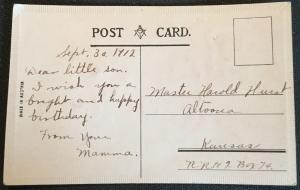 POST CARD.
Sept. 30 1912
Dear little son.
I wish you a
bright and happy
birthday.
From Your
Mamma.
Master Harold Hurst
Altoona
Kansas